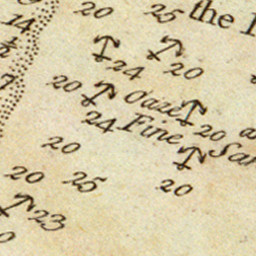 20 25 the
14
24 20
7 20
oaze
24 Fine 20
20
20 25 20
23